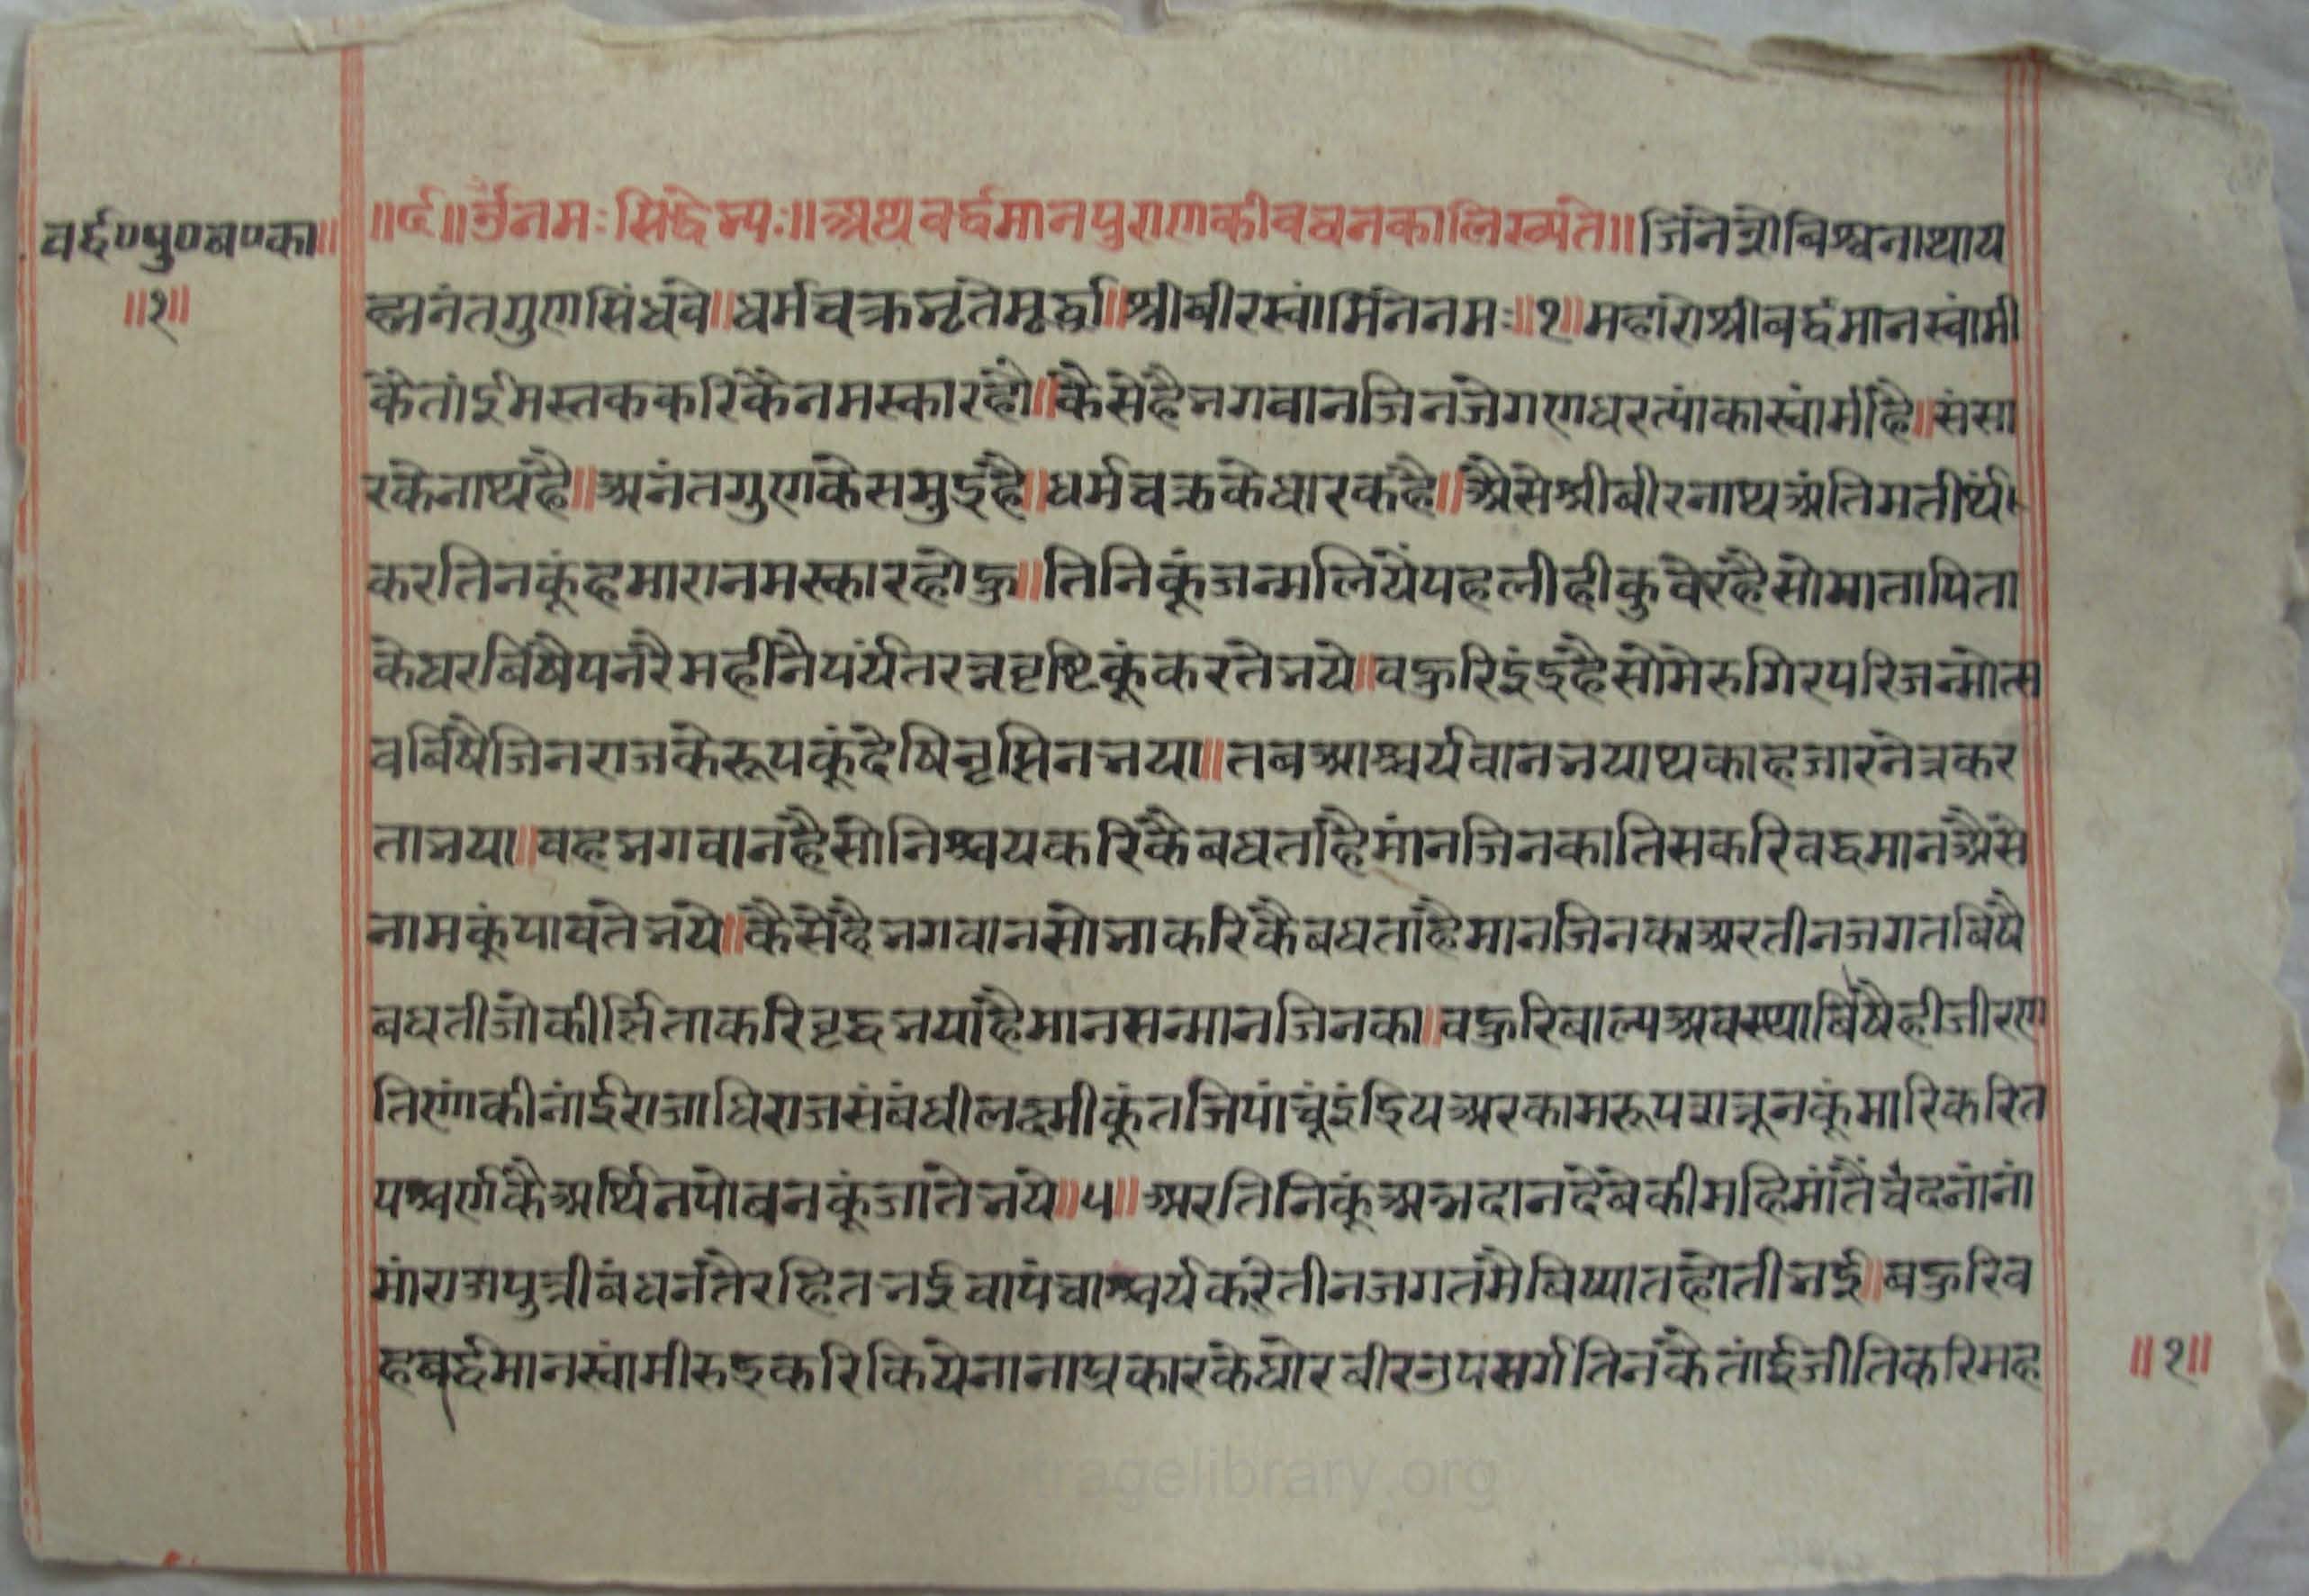 वर्द्ध०पु०व०का॥
॥१॥
॥ॐ॥ ॐनमः सिद्धेभ्यः॥ अथ वर्द्धमानपुराणकीवचनकालिख्यते॥ जिनेशेविश्वनाथाय
ह्यनंतगुणसिंधवे॥ धर्मचक्रभृतेमूर्द्ध्ना॥ श्रीवीरस्वांमिनेनमः॥१॥ महांरोश्रीवर्द्धमानस्वांमी
कैतांईमस्तककरिकैनमस्कारहो॥ कैसेहैभगवानजिनजेगणधरत्यांकास्वांमीहै॥ संसा
रकेनाथहै॥ अनंतगुणकेसमुद्रहै॥ धर्मचक्रकेधारकहै॥ अैसेश्रीबीरनाथअंतिमतीर्थं
करतिनकूंहमारानमस्कारहोहु॥ तिनिकूंजन्मलियेंपहलीहीकुवेरहैसोमातापिता
केघरबिषैपनरैमहीनैपर्यंतरत्नवृष्टिकूंकरतेभये॥ वहुरिइंद्रहैसोमेरुगिरपरिजन्मोत्स
वबिषैजिनराजकेरूपकूंदेषितृप्तिनभया॥ तबआश्चर्यवानभयाथकाहजारनेत्रकर
ताभया॥ वहभगवानहैसोनिश्चयकरिकैबधताहैमांनजिनकातिसकरिवद्धमानअैसे
नामकूंपावतेभये॥ कैसेहैभगवानसोभाकरिकैबधताहैमानजिनकाअरतीनजगतबिषै
बधतीजोकीर्त्तिताकरिवृद्धभयाहैमानसन्मानजिनका॥ वहुरिबाल्यअवस्थाबिषैहीजीरण
तिणांकीनांईराजाधिराजसंबंधीलक्ष्मीकूंतजिपांचूंइंद्रियअरकामरूपशत्रूनकूंमारिकरित
पश्चर्णकैअर्थितपोबनकूंजातेभये॥५॥ अरतिनिकूंअन्नदानदेंबेकीमहिमांतैंचंदनांनां
मांराजपुत्रीबंधनतैरहितभईवापंचाश्चर्यकरेतीनजगतमैबिष्यातहोतीभई॥ बहुरिव
हबर्द्धमानस्वांमीरुद्रकरिकियेनानाप्रकारकेघोरबीरउपसर्गतिनकैतांईजीतिकरिमह
॥१॥